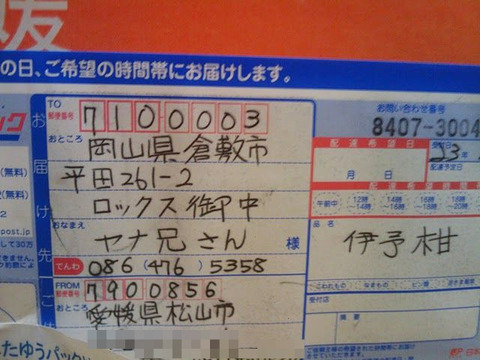 媛
の日、ご希望の時間帯にお届けします。
TO
郵便番号
7100003
おところ
岡山県倉敷市
平田261-2
ロックス御中
おなまえ
ヤナ兄さん 様
でんわ 086 (476) 5358
FROM
郵便番号
7900856
おところ
愛媛県松山市
お届け先
ック
(無料)
(無料)
お問い合わせ番号
8407-3004
配達希望日
月 日
23
配達予定日
午前中
12時
~14時
14時
~16時
16時
~18時
18時
~20時
品名
伊予柑
こわれもの
なまもの
ビン類
逆さま厳禁
受付店
摘要
たゆうパック